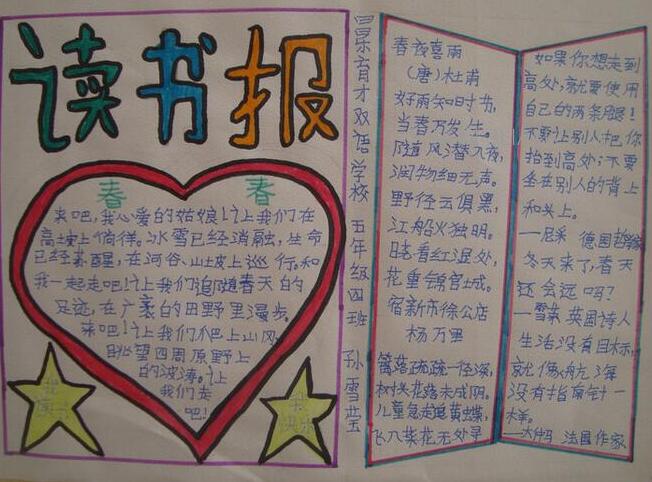 读书报
春 春
来吧,我心爱的姑娘!让我们在
高坡上倘佯。冰雪已经消融,生命
已经苏醒,在河谷、山坡上巡行,和
我一起走吧!让我们追随春天的
足迹,在广袤的田野里漫步。
来吧!让我们爬上山冈,
眺望四周原野上
的波涛。让
我们走
吧!
我
读书
我
快乐
育才双语学校 五年级四班 孙雪莹
春夜喜雨
(唐)杜甫
好雨知时节,
当春万发生。
随风潜入夜,
润物细无声。
野径云俱黑,
江船火独明。
晓看红湿处,
花重锦官城。
宿新市徐公店
杨万里
篱落疏疏一径深,
树头花落未成阴。
儿童急走追黄蝶,
飞入菜花无处寻
如果你想走到
高处,就要使用
自己的两条腿!
不要让别人把你
抬到高处;不要
坐在别人的背上
和头上。
—尼采 德国哲学家
冬天来了,春天
还会远吗?
—雪莱 英国诗人
生活没有目标,
就像航海
没有指南针一
样。
—大仲马 法国作家